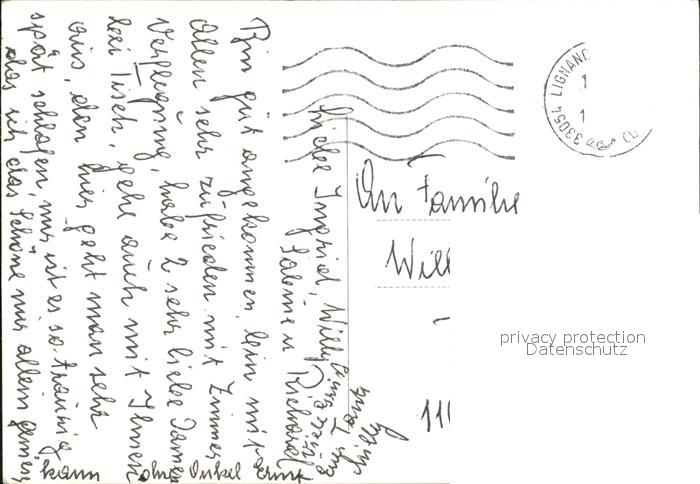 Liebe Ingrid, Willy
Sabine u Richard
Bin gut angekommen, bin mit
allen sehr zufrieden mit Zimmer
Verpflegung, habe 2 sehr liebe Damen
bei Tisch, gehe auch mit Ihnen
aus, den hier geht man sehr
spät schlafen, mir ist es so traurig
das ich das Schöne nur allein
kann ohne Onkel Ernst
Eure Tante
Milly
An Familie
Will
111
33054 LIGNANO
1
1
privacy protection
Datenschutz